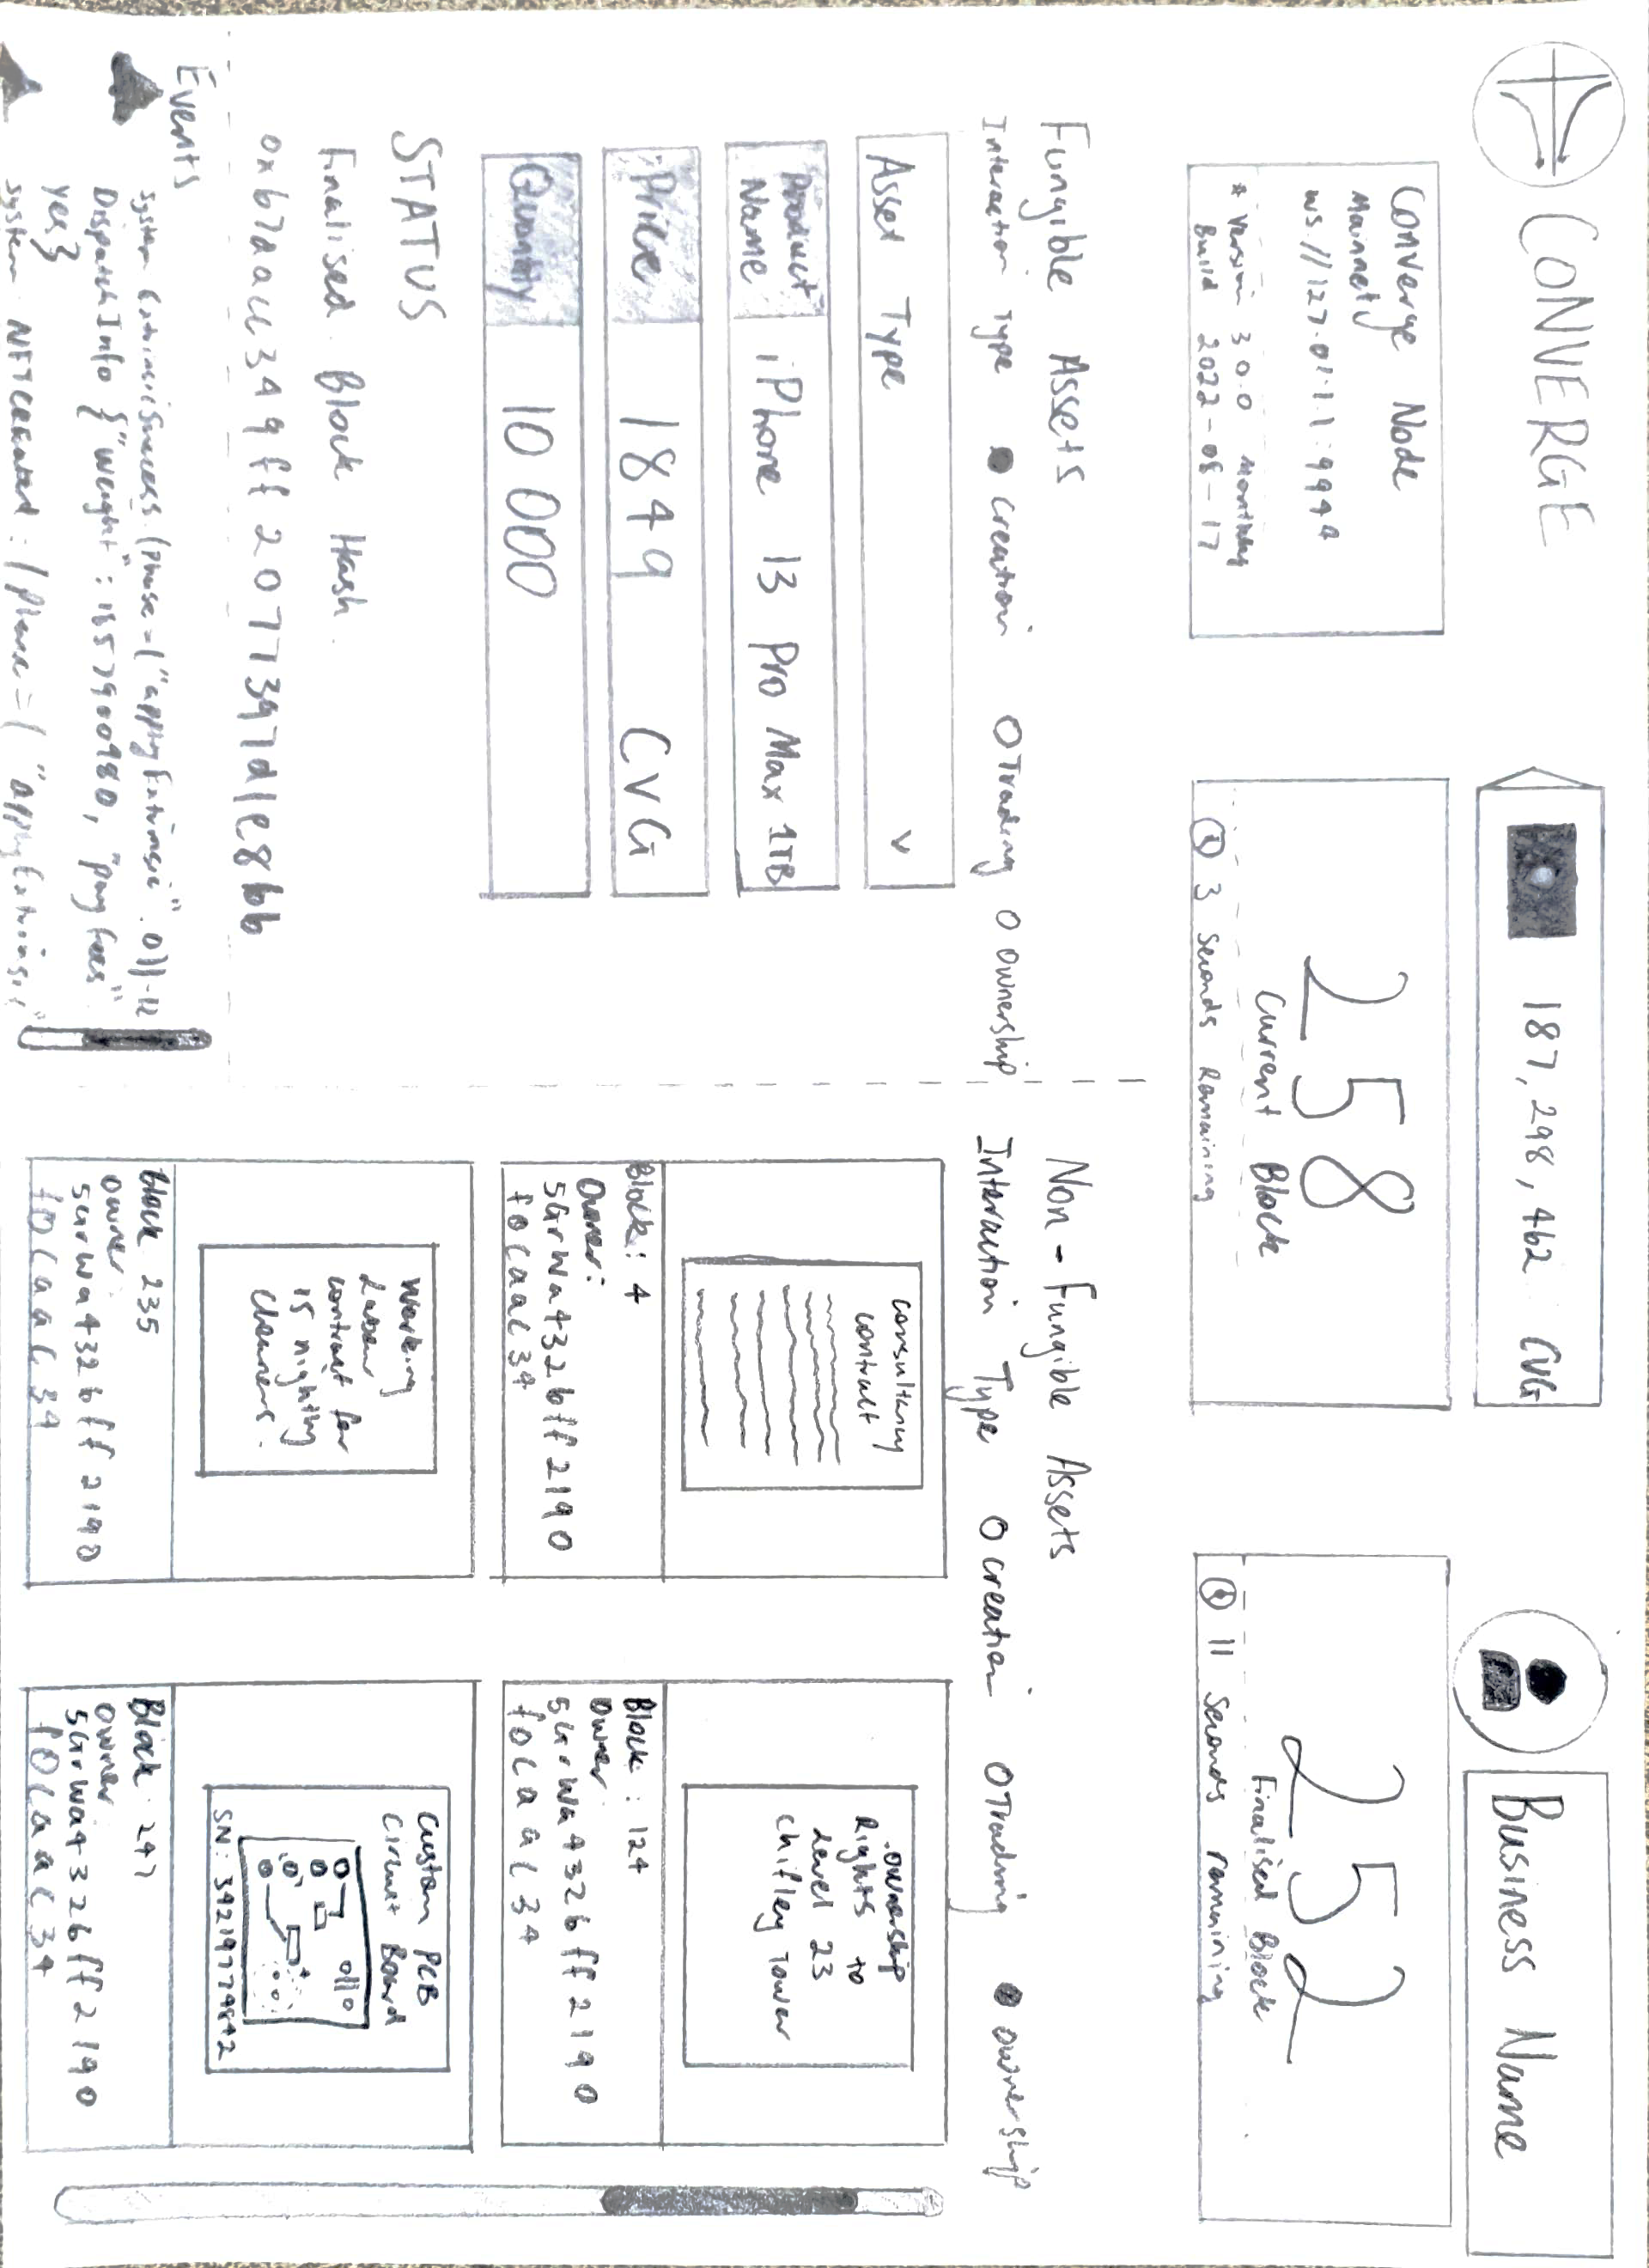 CONVERGE
187,298,462 CVG
Business Name
Converge Node
Mainnet
ws://127.0.1.1:9944
* Version 3.0.0 Monthly
Build 2022-08-17
258
Current Block
3 seconds Remaining
252
Finalised Block
11 seconds remaining
Fungible Assets
Interaction Type creation Trading ownership
Asset Type
Product Name iPhone 13 Pro Max 1TB
Price 1849 CVG
Quantity 10 000
STATUS
Finalised Block Hash.
0xb7aac349ff2077397d1e8bb
Events
DispatchInfo {"weight": "pay fees"
yes}
system NFTCreated:
Non-Fungible Assets
Interaction Type creation Trading ownership
consultancy
contract
Block: 4
Owner:
5GrWa4326ff2190
f0caac34
ownership
Rights to
Level 23
Chifley Tower
Block: 124
owner
5GrWa4326ff2190
f0caac34
Working
Labour
contract for
15 nightly
cleaners.
block 235
owner
5GrWa4326ff2190
f0caac34
Custom PCB
Circuit Board
Block 247
owner
5GrWa4326ff2190
f0caac34